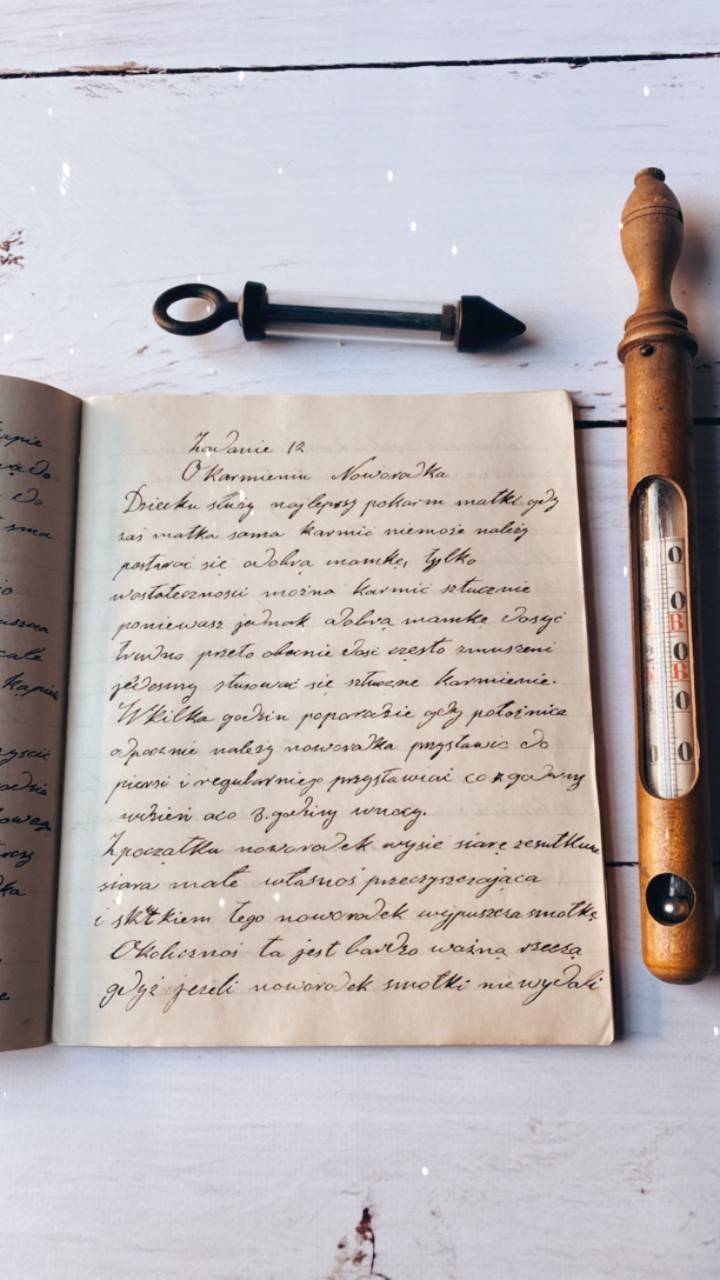 Zadanie 12
O Karmieniu Noworodka
Dziecku służy najlepszy pokarm matki gdy
zaś matka sama karmić niemoże należy
postarać się o dobrą mamkę, tylko
wostateczności można karmić sztucznie
ponieważ jednak o dobrą mamkę dosyć
trudno przeto obecnie dość często zmuszeni
jezdesmy stusować sie sztuczne karmienie.
W kilka godzin poporodzie gdy położnica
odpocznie należy noworodka przystawić do
piersi i regularniejo przystawiać co godziny
wdzień aco 3. godziny wnocy.
Zpoczątku noworodek wysie siarę
siara małe własnoś przeczyszczająca
i skutkiem tego noworodek wypuszcza smołkę
Okolicznoś ta jest bardzo ważną rzeczą
gdyż jeżeli noworodek smołki niewydali
kąpieli
0
0
B
0
B
0
0
0